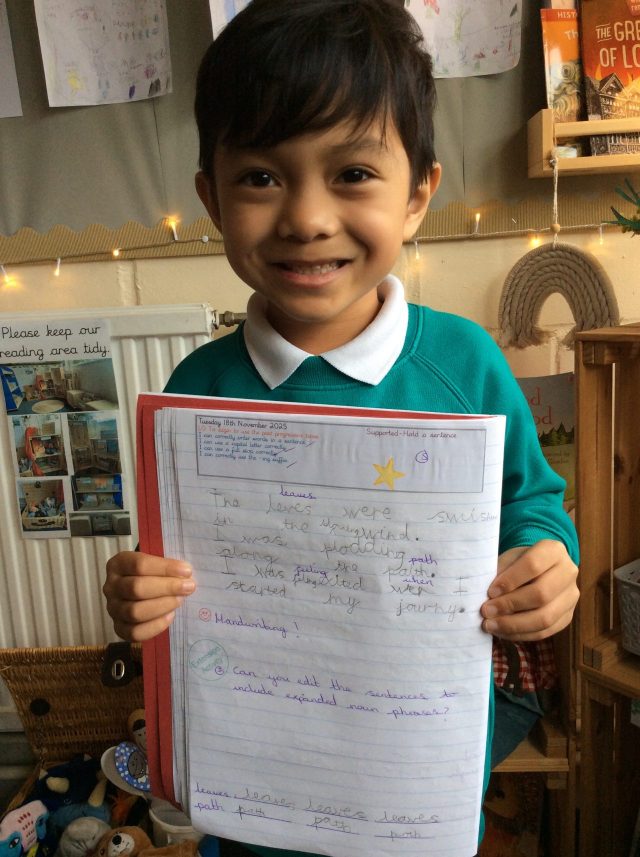 HIST
THE GRE
OF LO
Please keep our
reading area tidy.
Tuesday 18th November 2025
Supported-Hold a sentence
LO To begin to use the past progressive tense
I can correctly order words in a sentence
I can use a capital letter correctly
I can use a full stop correctly
I can correctly use the -ing suffix
leaves
The leves were
in the wind.
I was plodding
along the path.
path
I was feling excited wen I
feeling
when
started my journy.
Handwriting!
Can you edit the sentences to
include expanded noun phrases?
leaves leaves leaves leaves
path path path path